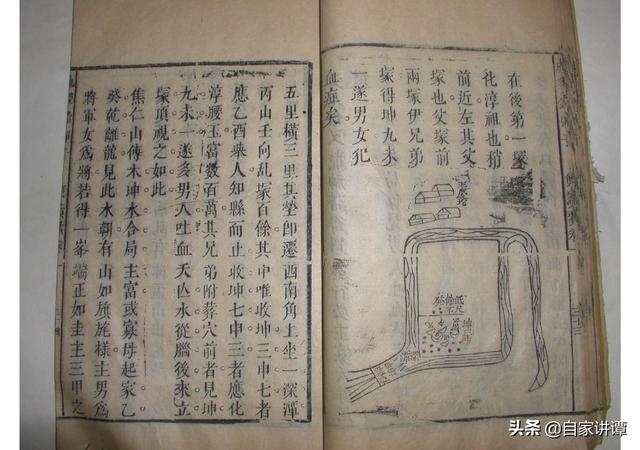 在後第一塚
化淳祖也稍
前近左其父
塚也父塚前
兩塚伊兄弟
塚得坤九未
一遂男女犯
血症矣
五里橫三里其塋即遷西南角上坐一深潭
丙山壬向亂塚百餘其中唯收坤三申七者
應乙酉舉人知縣而止收坤七申三者應化
淳腰玉富數百萬其兄弟附葬穴前者見坤
九未一遂多男人吐血夭亾水從腦後來立
塚頂視之如此
焦仁山傳木坤水合局主富或寡母起家乙
癸乾離龍見此水朝有山如旗旄樣主男爲
將軍女爲將若得一峯端正如圭主三甲之
头条 @自家讲谭